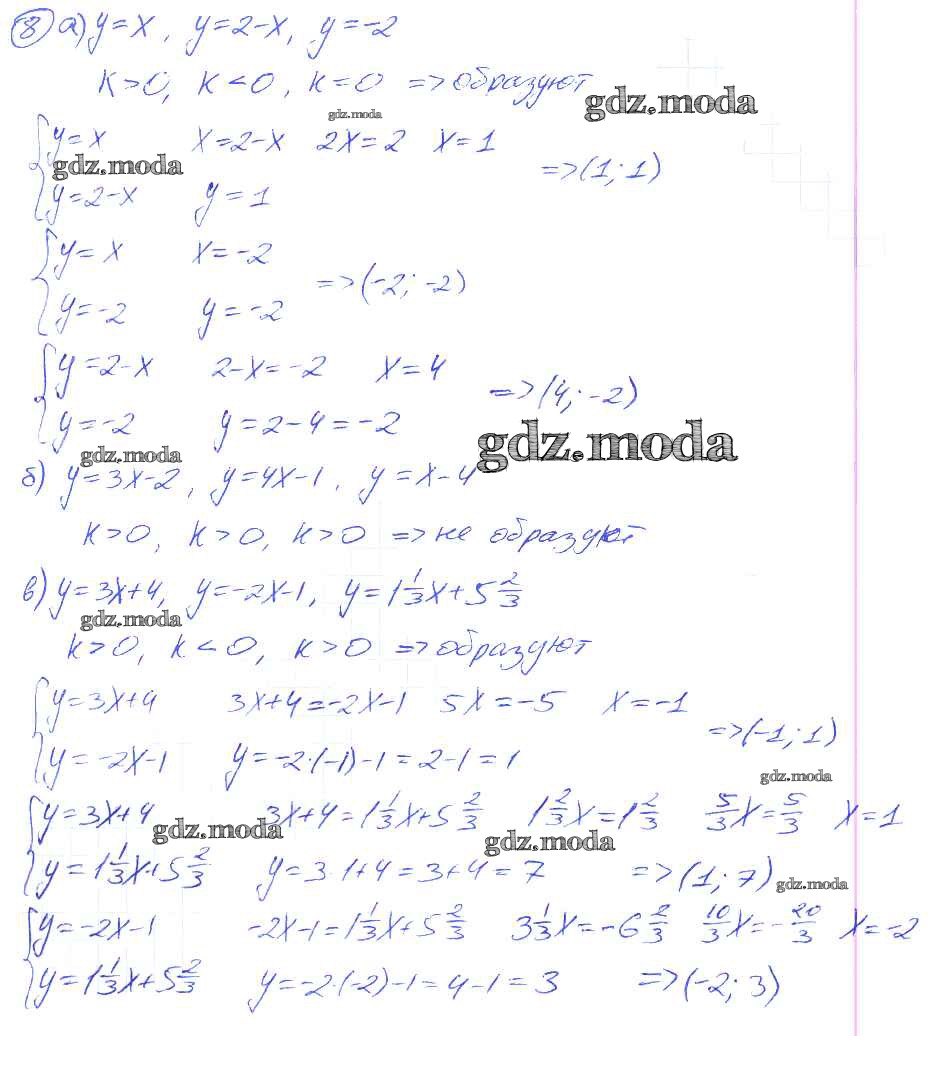 8 а) y=x, y=2-x, y=-2
k>0, k<0, k=0 => образуют
gdz.moda
gdz.moda
{y=x x=2-x 2x=2 x=1
gdz.moda => (1; 1)
y=2-x y=1
{y=x x=-2
=> (-2; -2)
y=-2 y=-2
{y=2-x 2-x=-2 x=4
=> (4; -2)
y=-2 y=2-4=-2
gdz.moda
gdz.moda
б) y=3x-2, y=4x-1, y=x-4
k>0, k>0, k>0 => не образуют
в) y=3x+4, y=-2x-1, y=1 1/3x+5 2/3
gdz.moda
k>0, k<0, k>0 => образуют
{y=3x+4 3x+4=-2x-1 5x=-5 x=-1
=> (-1; 1)
y=-2x-1 y=-2·(-1)-1=2-1=1
gdz.moda
{y=3x+4 3x+4=1 1/3x+5 2/3 1 2/3x=1 2/3 5/3x=5/3 x=1
gdz.moda
gdz.moda
y=1 1/3x+5 2/3 y=3·1+4=3+4=7 => (1; 7)
gdz.moda
{y=-2x-1 -2x-1=1 1/3x+5 2/3 3 1/3x=-6 2/3 10/3x=-20/3 x=-2
y=1 1/3x+5 2/3 y=-2·(-2)-1=4-1=3 => (-2; 3)